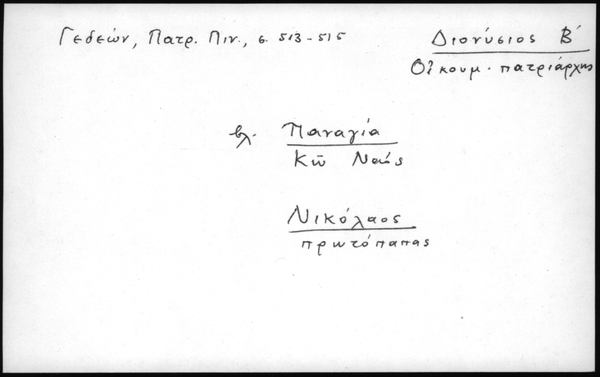 Γεδεών, Πατρ. Πιν., σ. 513-515
Διονύσιος Β΄
Οἰκουμ. πατριάρχης
βλ. Παναγία
Κῶ Ναός
Νικόλαος
πρωτόπαπας